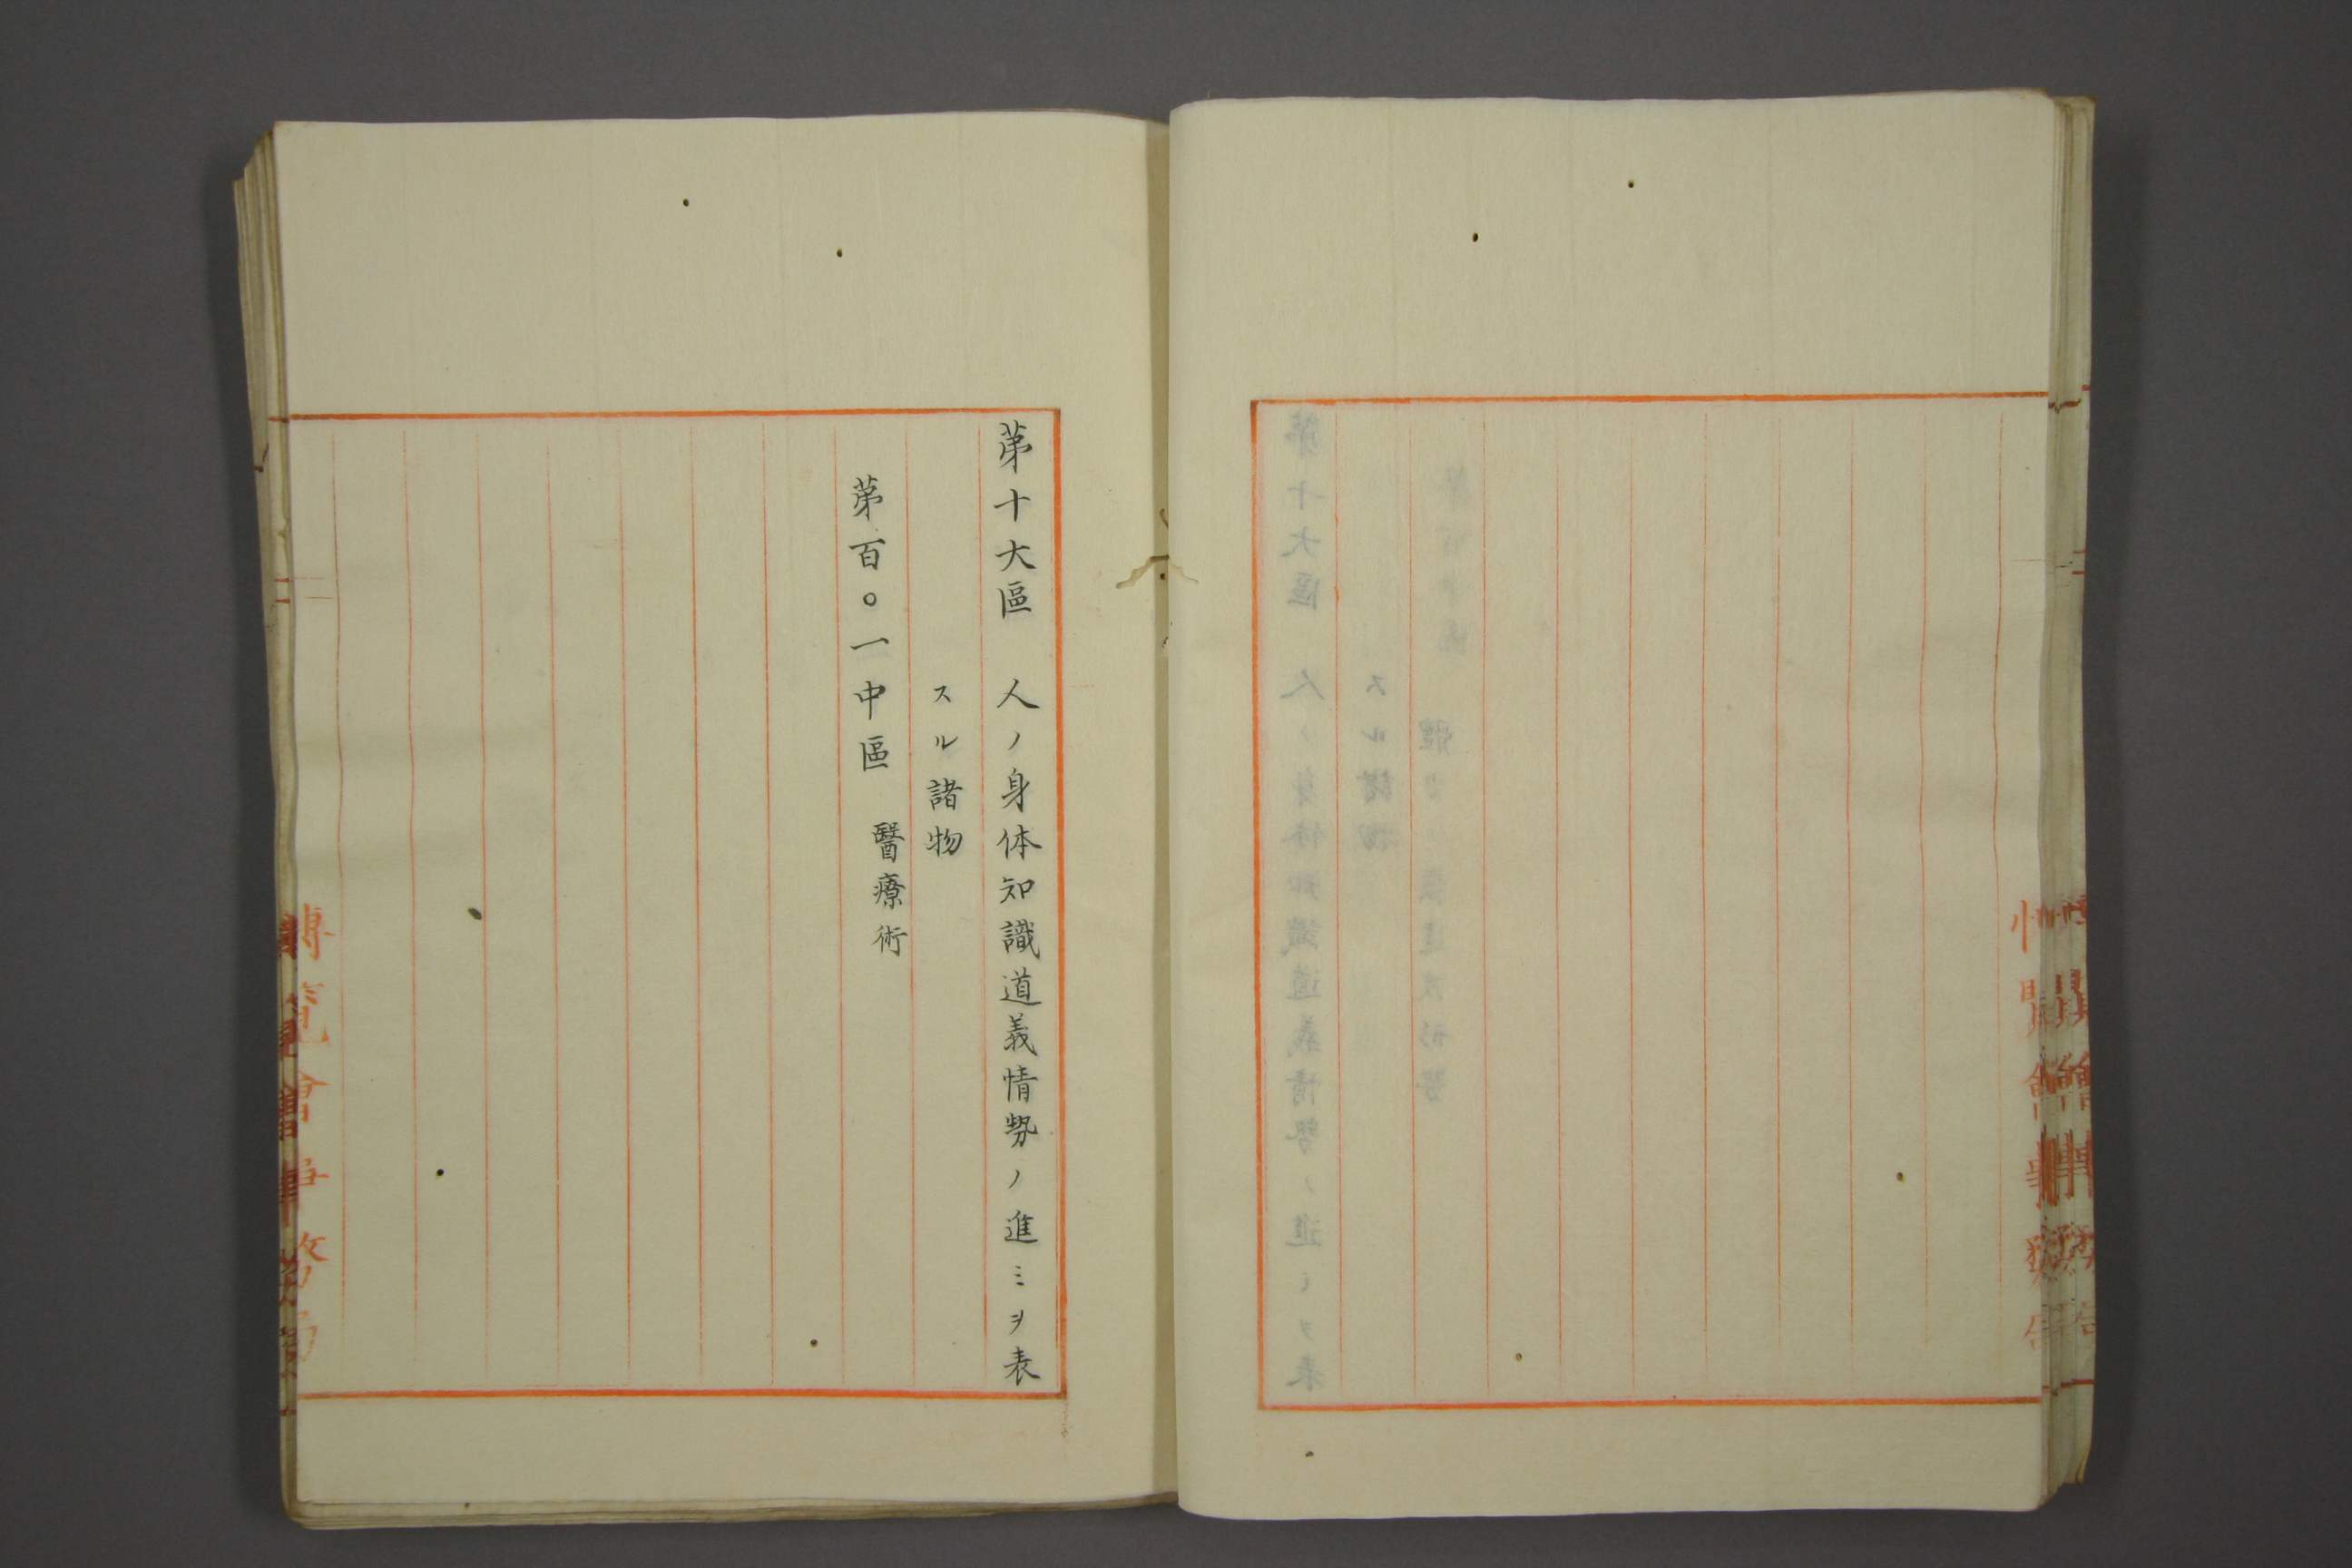 第十大區　人ノ身体知識道義情勢ノ進ミヲ表
スル諸物
第百〇一中區　醫療術
博覽會事務局